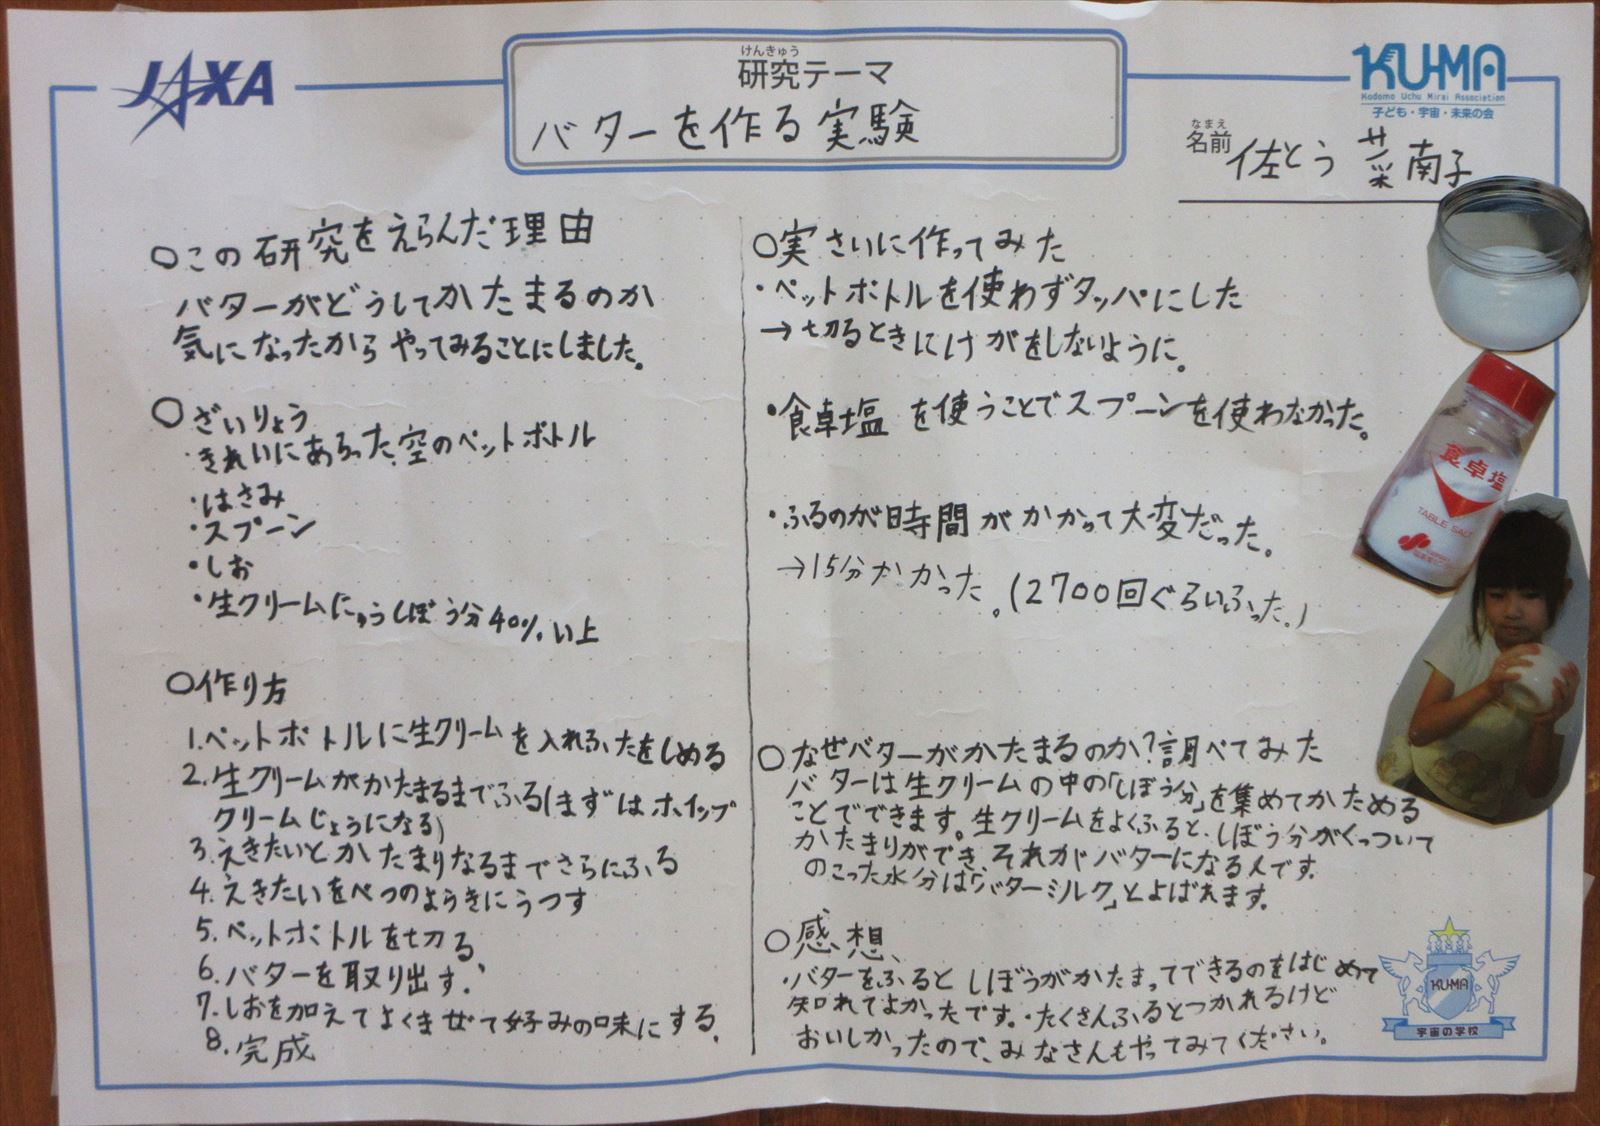 JAXA
けんきゅう
研究テーマ
バターを作る実験
KU-MA
Kodomo Uchu Mirai Association
子ども・宇宙・未来の会
なまえ
名前 佐とう 菜南子
○この研究をえらんだ理由
バターがどうしてかたまるのか
気になったからやってみることにしました。
○ざいりょう
・きれいにあらった空のペットボトル
・はさみ
・スプーン
・しお
・生クリームにゅうしぼう分40%い上
○作り方
1.ペットボトルに生クリームを入れふたをしめる
2.生クリームがかたまるまでふる(まずはホイップ
クリームじょうになる)
3.えきたいとかたまりなるまでさらにふる
4.えきたいをべつのようきにうつす
5.ペットボトルを切る。
6.バターを取り出す。
7.しおを加えてよくまぜて好みの味にする。
8.完成
○実さいに作ってみた
・ペットボトルを使わずタッパにした
→切るときにけがをしないように。
・食卓塩を使うことでスプーンを使わなかった。
・ふるのが時間がかかって大変だった。
→15分かかった。(2700回ぐらいふった。)
○なぜバターがかたまるのか?調べてみた
バターは生クリームの中の「しぼう分」を集めてかためる
ことでできます。生クリームをよくふると、しぼう分がくっついて
かたまりができ、それがバターになる人です。
のこった水分は「バターミルク」とよばれます。
○感想、
・バターをふるとしぼうがかたまってできるのをはじめて
知れてよかったです。・たくさんふるとつかれるけど
おいしかったので、みなさんもやってみてください。
食卓塩
TABLE SALT
KU-MA
宇宙の学校